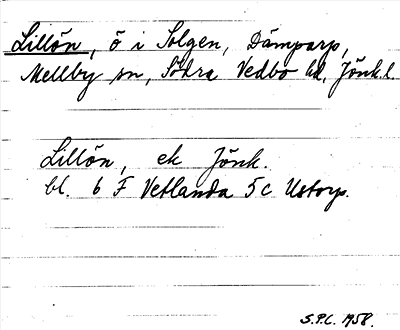 Lillön, ö i Solgen, Dämparp,
Mellby sn, Södra Vedbo hd, Jönk. l.
Lillön, ek Jönk.
bl. 6 F Vetlanda 5c Ustorp.
S.P.C. 1958.